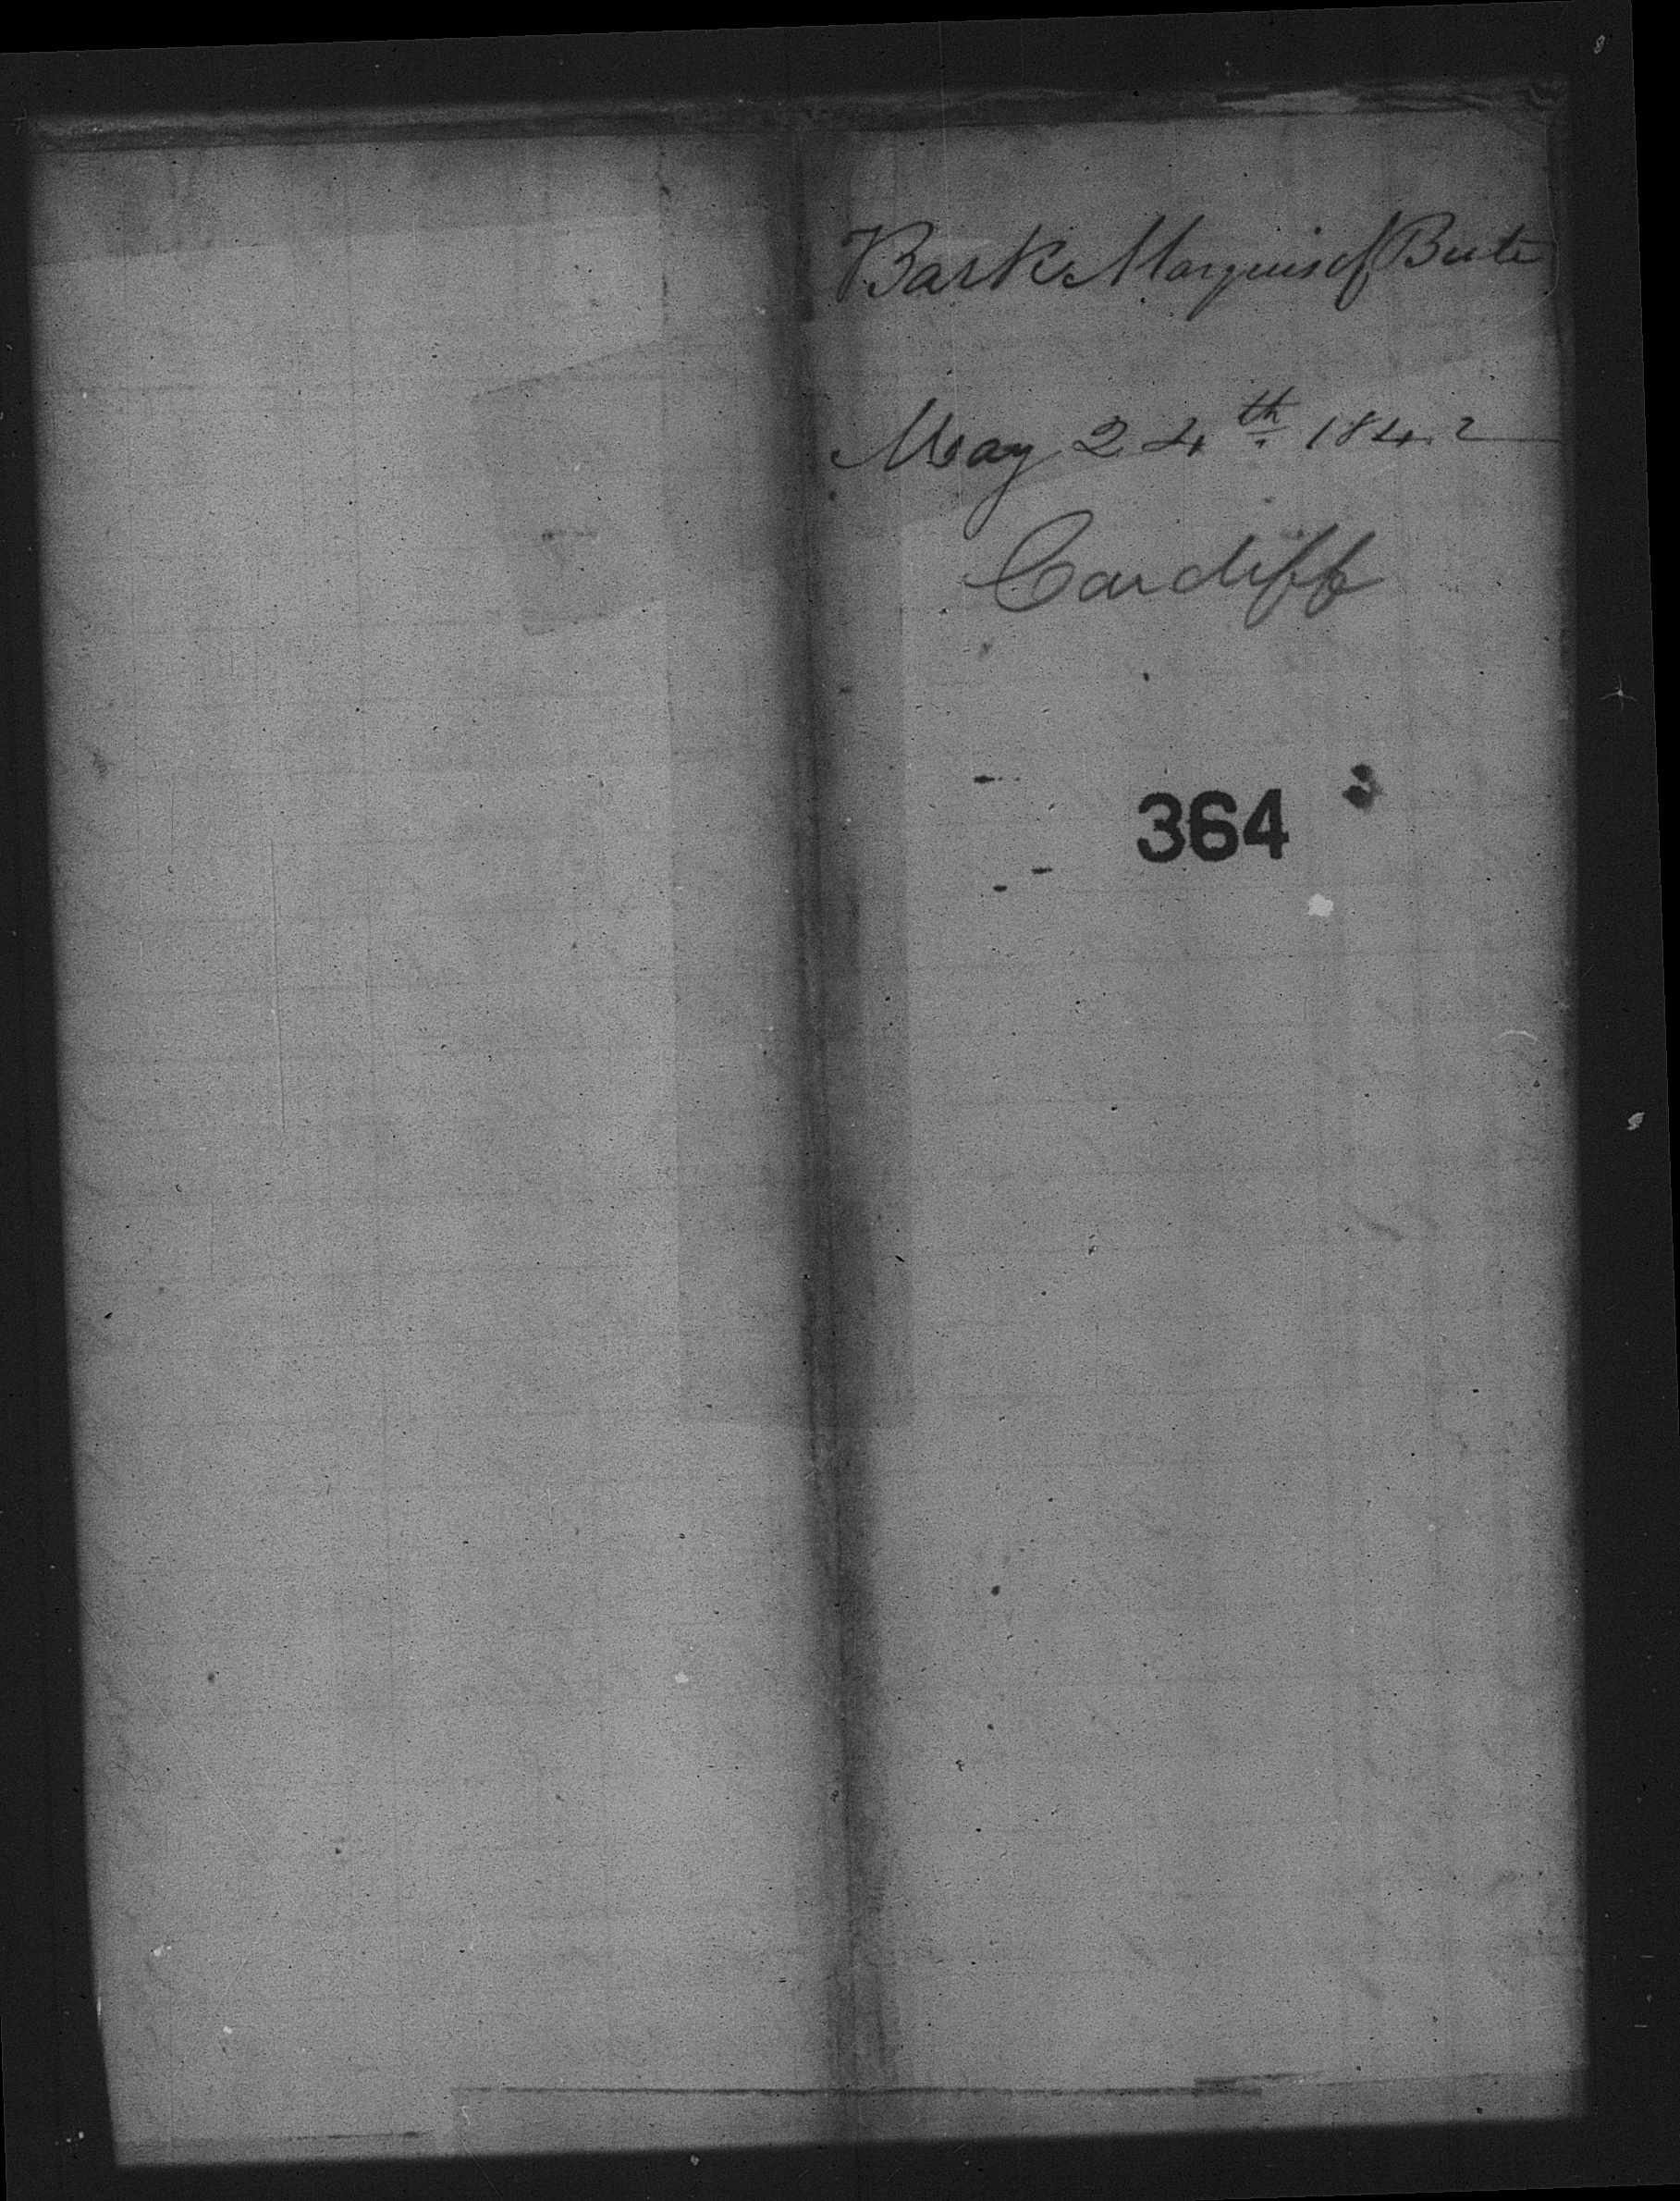 Bark Marquis of Bute
May 24th 1842
Cardiff
364